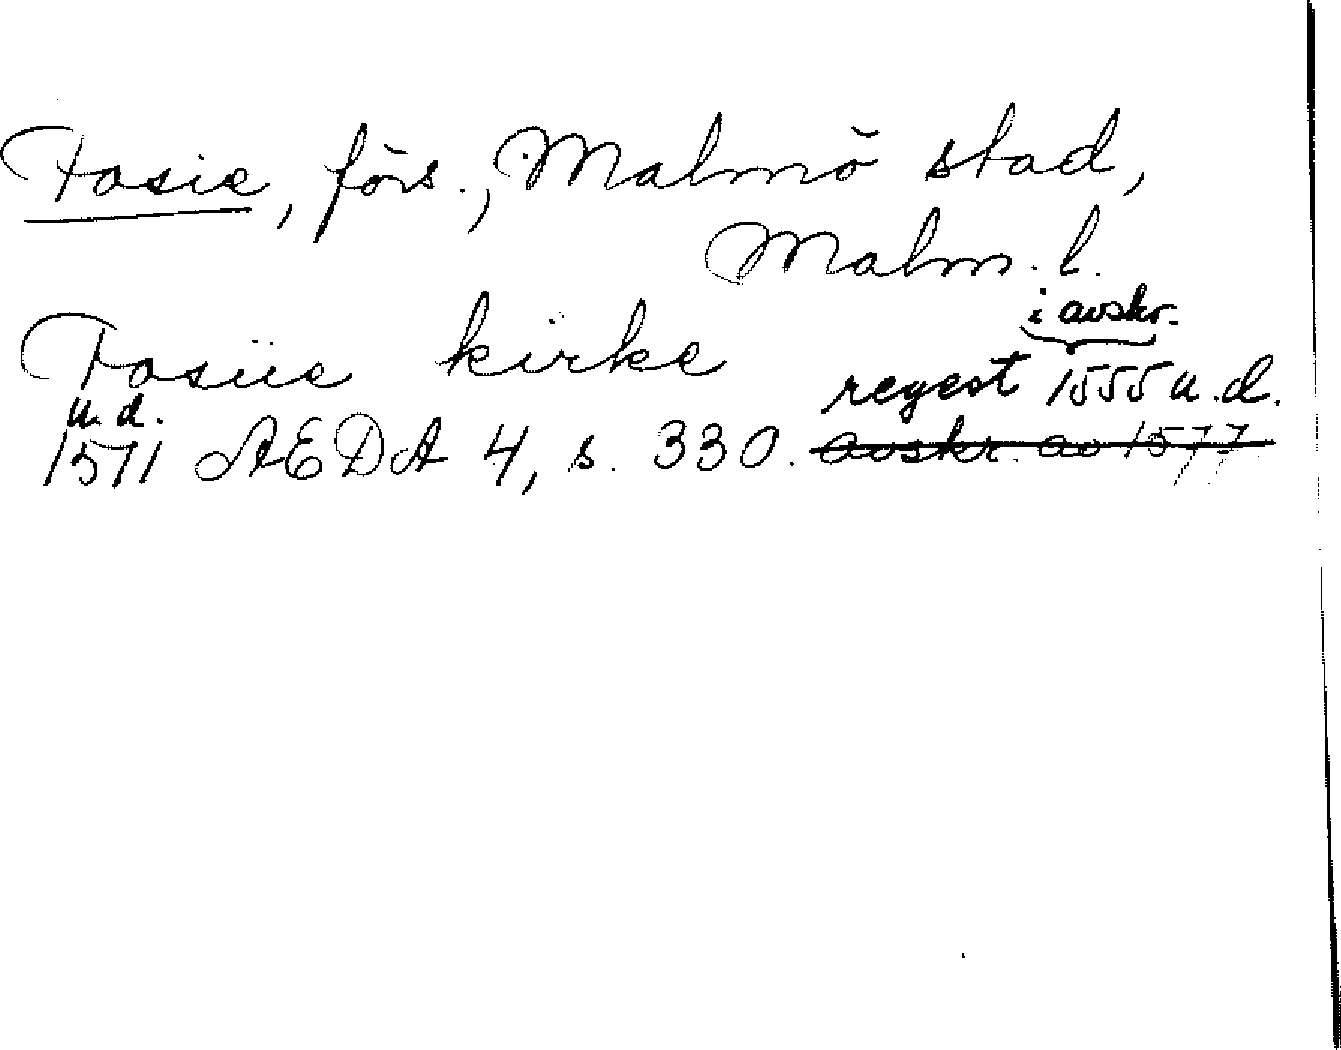 Fosie, förs., Malmö stad,
Malm. l.
i avskr.
Fosiie kirke
regest 1555 u.d.
u. d.
1571 AEDA 4, s. 330. avskr. av 1577